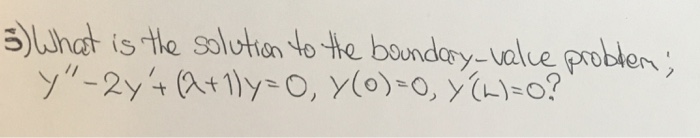 5) What is the solution to the boundary-value problem;
y"-2y'+(λ+1)y=0, y(0)=0, y'(L)=0?